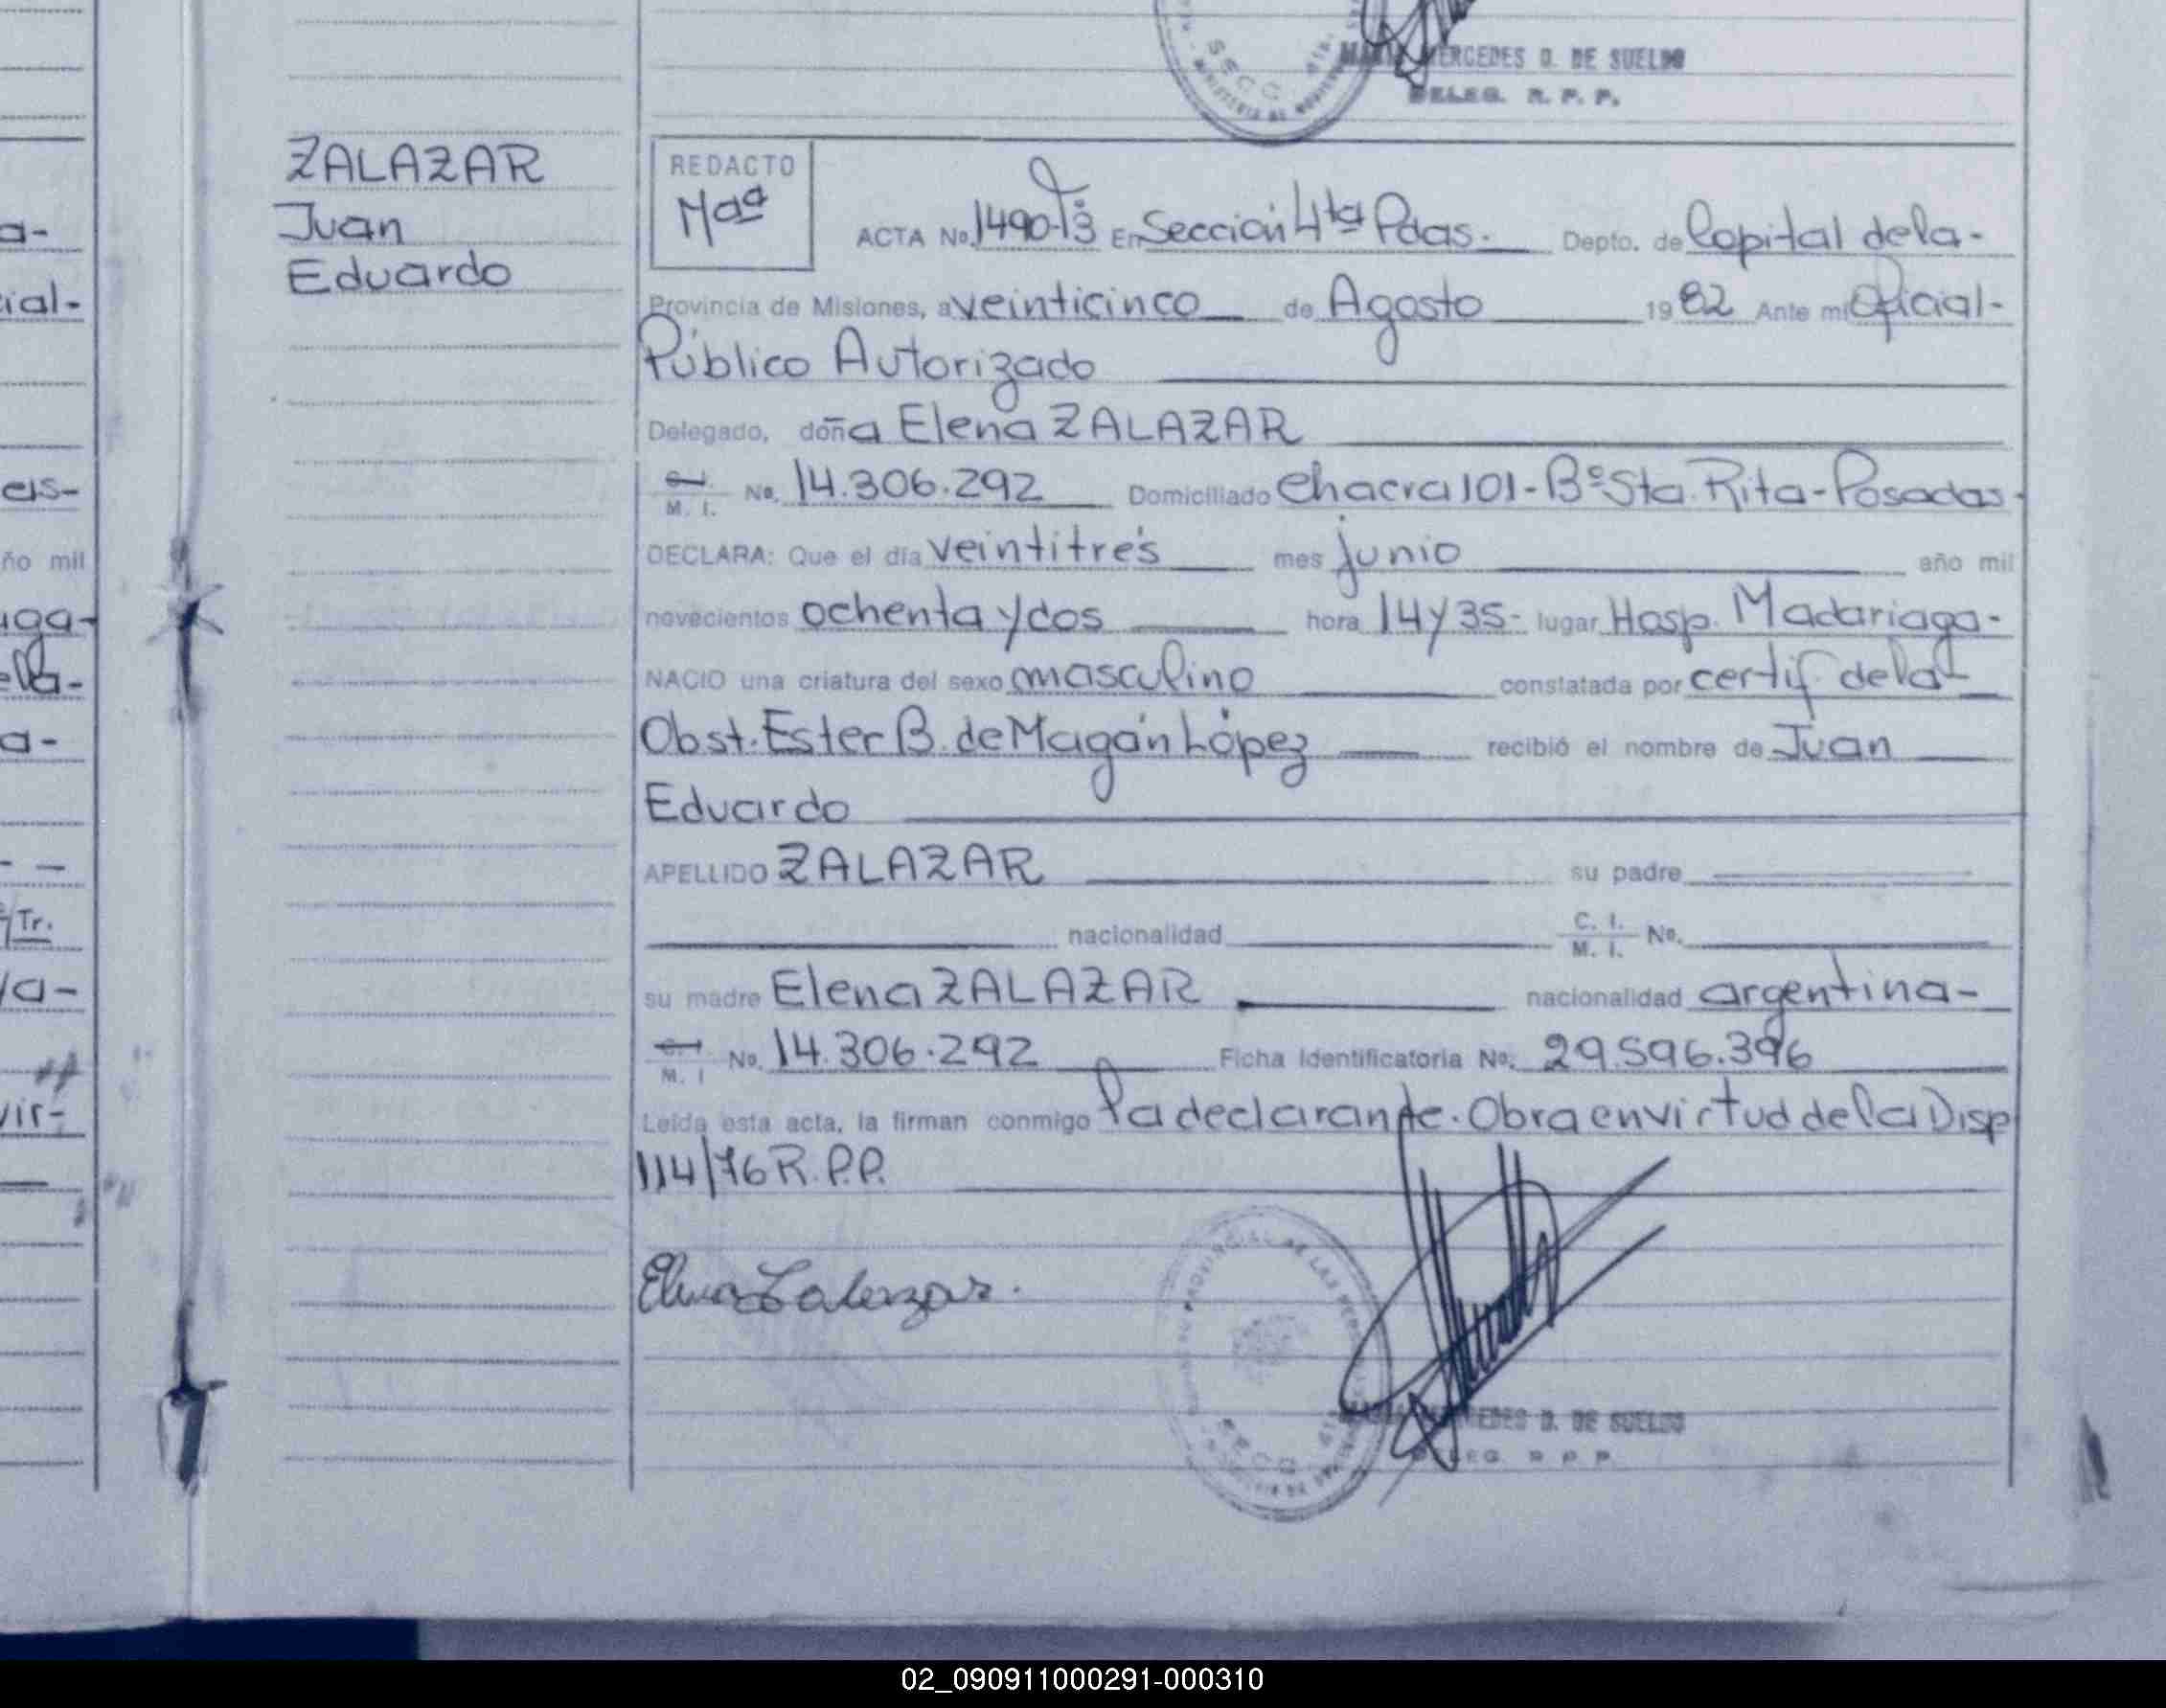 MERCEDES D. DE SUELDO
DELEG. R. P. P.
ZALAZAR
Juan
Eduardo
a-
ial-
eis-
ño mil
uga-
ella-
a-
Tr.
/a-
vir-
REDACTO
Mªª
ACTA No. 1490-Tº3 En Sección 4ta Pdas. Depto. de Capital de la-
Provincia de Misiones, a veinticinco de Agosto 1982 Ante mi Oficial-
Público Autorizado
Delegado, doña Elena ZALAZAR
C. I. M. I. No. 14.306.292 Domiciliado Chacra 101-Bº Sta. Rita-Posadas-
DECLARA: Que el día veintitrés mes junio año mil
novecientos ochenta y dos hora 14 y 35- lugar Hosp. Madariaga-
NACIO una criatura del sexo masculino constatada por certif. de la
Obst. Ester B. de Magán López recibió el nombre de Juan
Eduardo
APELLIDO ZALAZAR su padre
nacionalidad C. I. M. I. No.
su madre Elena ZALAZAR nacionalidad argentina-
C. I. M. I No. 14.306.292 Ficha Identificatoria No. 29.596.396
Leída esta acta, la firman conmigo la declarante. Obra en virtud de la Disp
114/76 R.P.P.
Elena Zalazar.
D. DE SUELDO
02_090911000291-000310